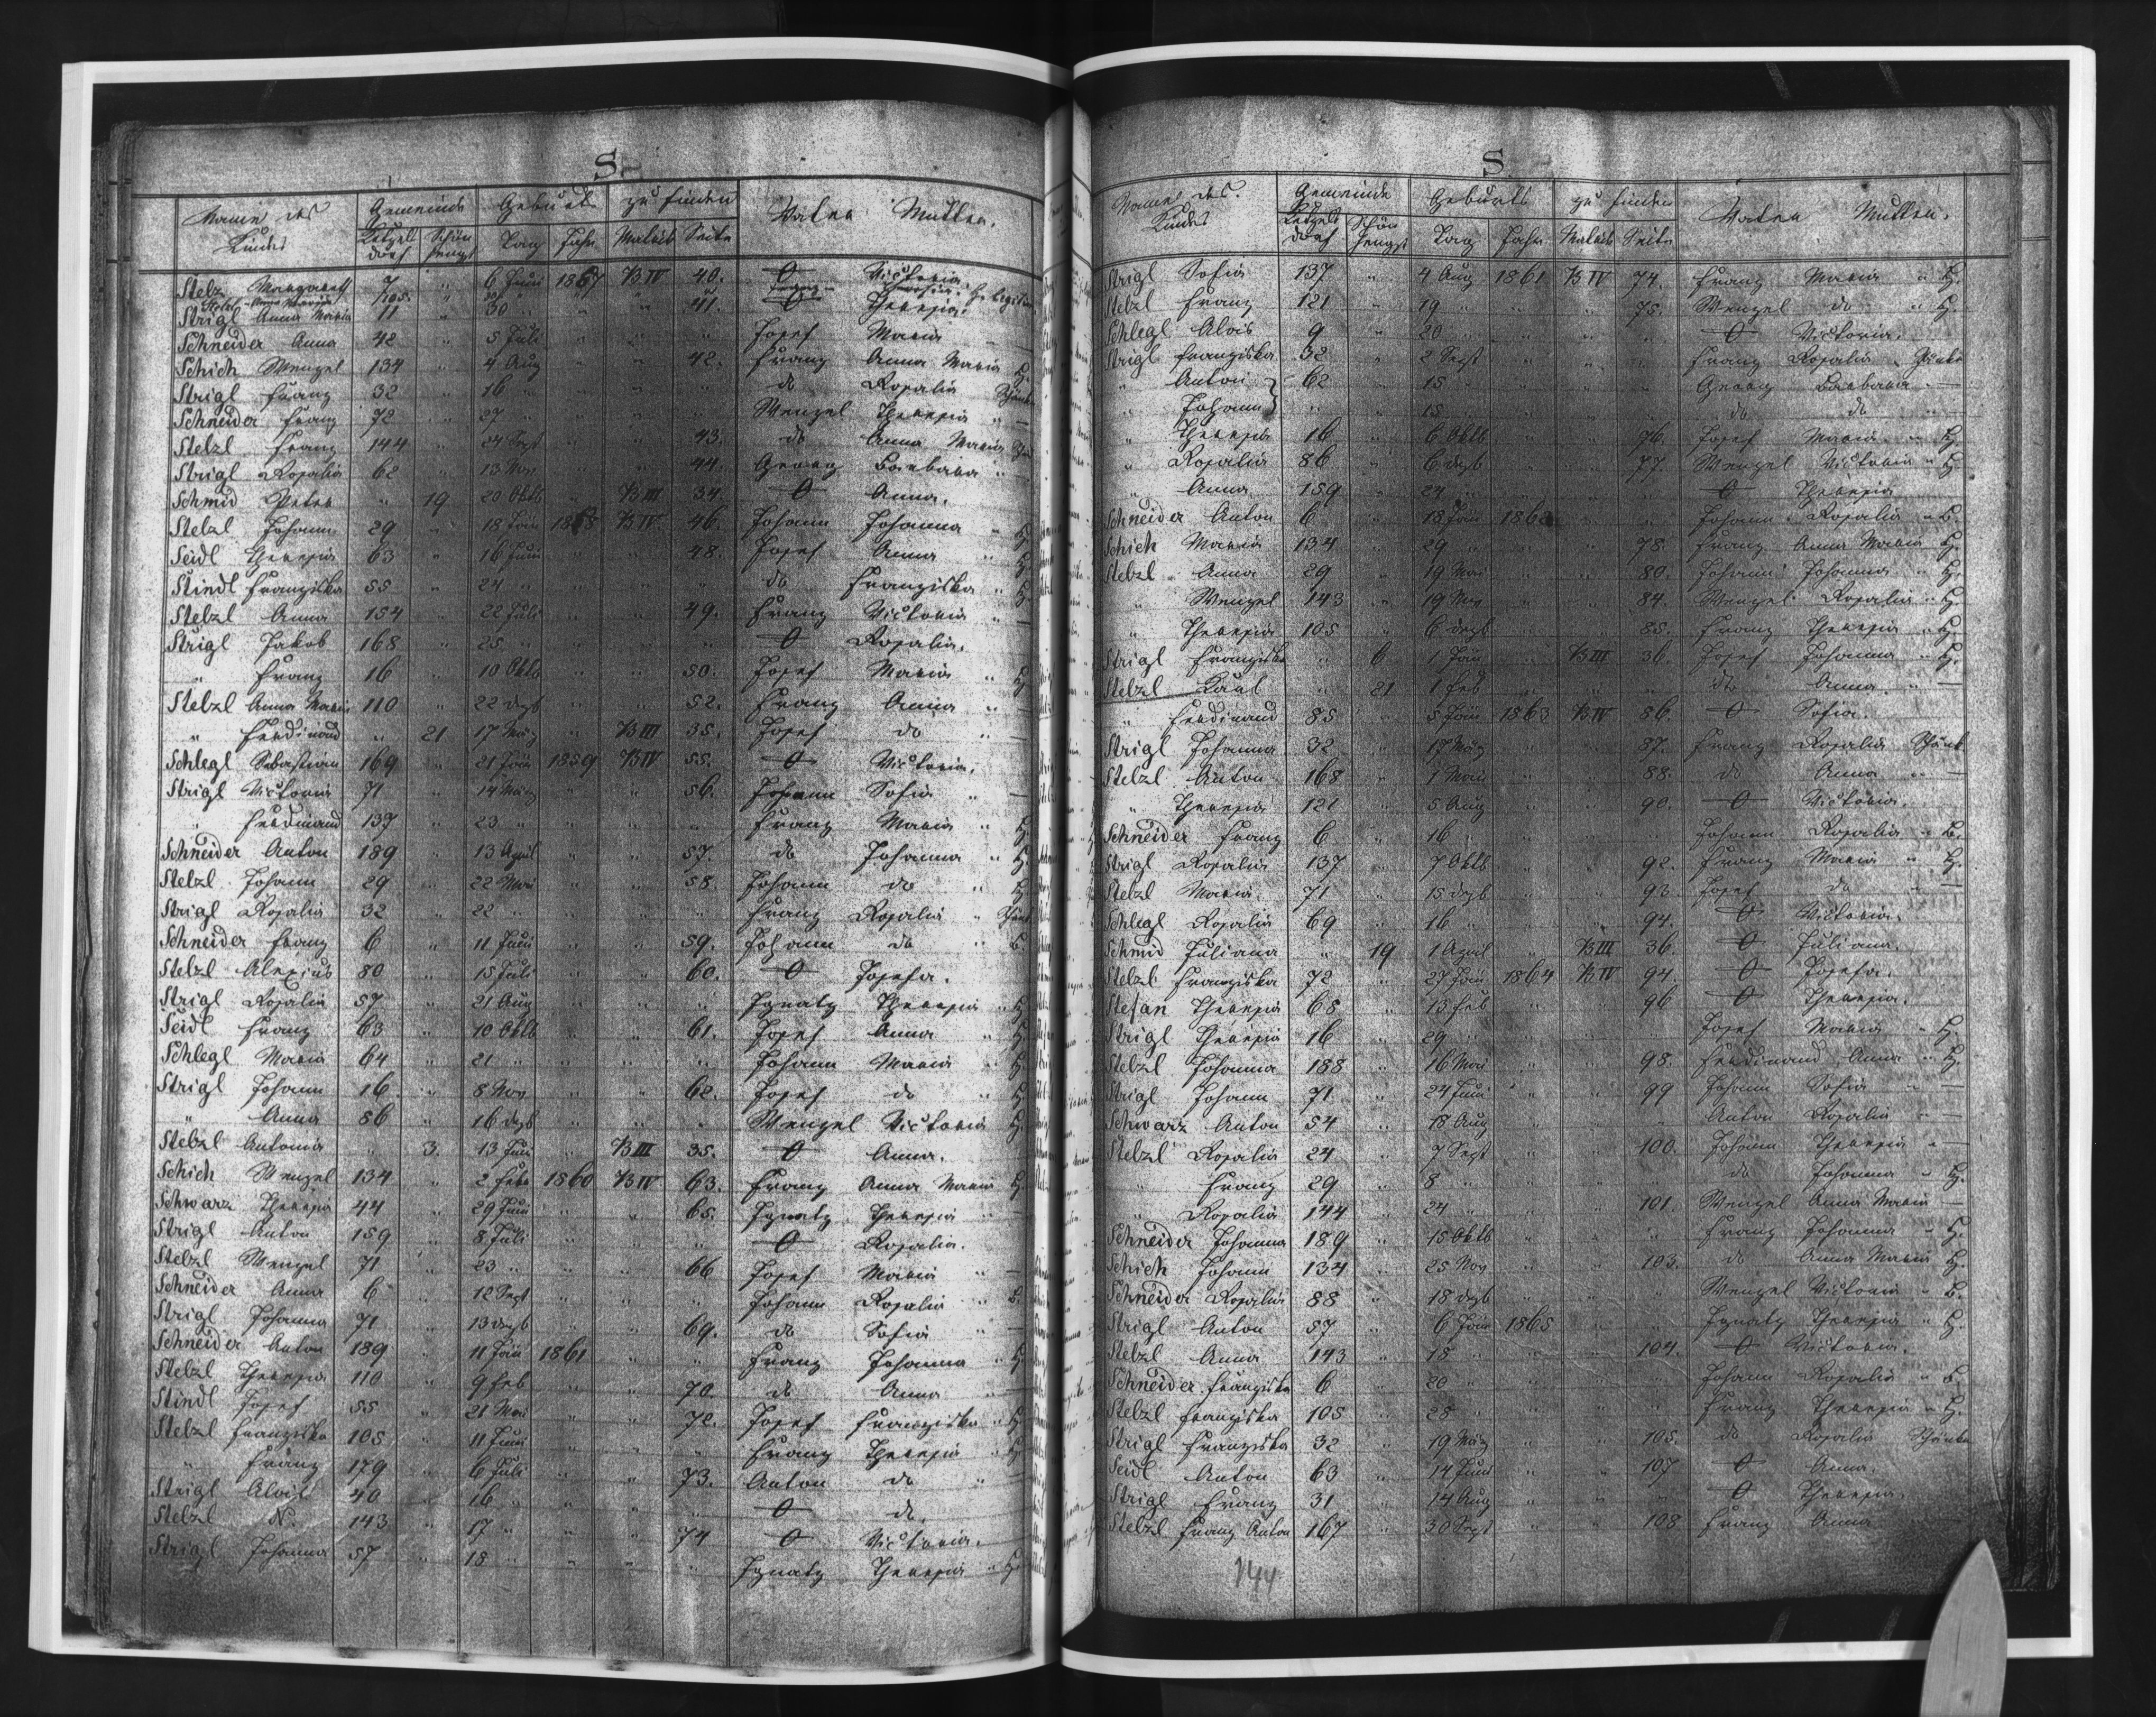 S
Name des Kindes Gemeinde Geburts zu finden Vater Mutter.
Ketzelsdorf Schönhengst Tag Jahr Matrik Seite
Stelz Margareth 7 " 6 Juni 1857 B IV 40. O Victoria
Stelzl Anna Maria 105 " " " "
Strigl Anna Maria 11 " 30 " " " 41. O Theresia.
Schneider Anna 42 " 5 Juli " " " Josef Maria —
Schich Wenzel 134 " 4 Aug " " 42. Franz Anna Maria H.
Strigl Franz 32 " 16 " " " " do Rosalia Schänk
Schneider Franz 72 " 27 " " " " Wenzel Theresia " —
Stelzl Franz 144 " 24 Sept " " 43. do Anna Maria
Strigl Rosalia 62 " 13 Nov " " 44. Georg Barbara "
Schmid Peter " 19 20 Oktb " B III 34. O Anna.
Stelzl Johann 29 " 18 Jän 1858 B IV. 46. Johann Johanna " H.
Seidl Theresia 63 " 16 Juni " " 48. Josef Anna " H.
Stindl Franziska 55 " 24 " " " " do Franziska " H.
Stelzl Anna 154 " 22 Juli " " 49. Franz Victoria " —
Strigl Jakob 168 " 25 " " " " O Rosalia.
" Franz 16 " 10 Oktb " " 50. Josef Maria " H.
Stelzl Anna Maria 110 " 22 dezb " " 52. Franz Anna " —
" Ferdinand " 21 17 März " B III 35. Josef do " —
Schlegl Sebastian 169 " 21 Jän 1859 B IV 55. O Victoria.
Strigl Victoria 71 " 14 März " " 56. Johann Sofia " —
" Ferdinand 137 " 23 " " " " Franz Maria " H.
Schneider Anton 189 " 13 April " " 57. do Johanna " H.
Stelzl Johann 29 " 22 Mai " " 58. Johann do " H.
Strigl Rosalia 32 " 22 " " " " Franz Rosalia " Schänk
Schneider Franz 6 " 11 Juni " " 59. Johann do " B.
Stelzl Alexius 80 " 15 Juli " " 60. O Josefa.
Strigl Rosalia 57 " 21 Aug " " " Ignatz Theresia " H.
Seidl Franz 63 " 10 Oktb " " 61. Josef Anna " H.
Schlegl Maria 64 " 21 " " " " Johann Maria " H.
Strigl Johann 16 " 8 Nov " " 62. Josef do " H.
" Anna 86 " 16 dezb " " " Wenzel Victoria H.
Stelzl Antonia " 3. 13 Juni " B III 35. O Anna.
Schich Wenzel 134 " 2 Febr 1860 B IV 63. Franz Anna Maria H.
Schwarz Theresia 44 " 29 Juni " " 65. Ignatz Theresia " —
Strigl Anton 159 " 8 Juli " " " O Rosalia.
Stelzl Wenzel 71 " 23 " " " 66 Josef Maria " —
Schneider Anna 6 " 12 Sept " " " Johann Rosalia " B.
Strigl Johanna 71 " 13 dezb " " 69. do Sofia " —
Schneider Anton 189 " 11 Jän 1861 " " Franz Johanna " H
Stelzl Theresia 110 " 9 Feb " " 70. do Anna " —
Stindl Josef 55 " 21 Mai " " 72. Josef Franziska " H.
Stelzl Franziska 105 " 11 Juni " " " Franz Theresia " H
" Franz 179 " 6 Juli " " 73. Anton do " —
Strigl Alois 40 " 16 " " " " O do.
Stelzl N. 143 " 17 " " " 74 O Victoria.
Strigl Johanna 57 " 18 " " " " Ignatz Theresia " H.
S
Name des Kindes Gemeinde Geburts zu finden Vater Mutter.
Ketzelsdorf Schönhengst Tag Jahr Matrik Seite
Strigl Sofia 137 " 4 Aug 1861 B IV 74. Franz Maria " H.
Stelzl Franz 121 " 19 " " " 75. Wenzel do " H.
Schlegl Alois 9 " 20 " " " " O Victoria.
Strigl Franziska 32 " 2 Sept " " " Franz Rosalia " Schänk
" Anton } 62 " 15 " " " " Georg Barbara " —
" Johann } " " 15 " " " " do do " —
" Theresia 16 " 6 Oktb " " 76. Josef Maria " H.
" Rosalia 86 " 6 dezb " " 77. Wenzel Victoria " H.
" Anna 159 " 24 " " " " O Theresia
Schneider Anton 6 " 18 Jän 1862 " " Johann Rosalia " B.
Schich Maria 134 " 29 " " " 78. Franz Anna Maria H.
Stelzl Anna 29 " 19 Mai " " 80. Johann Johanna " H.
" Wenzel 143 " 19 Nov " " 84. Wenzel Rosalia " H.
" Theresia 105 " 6 dezb " " 85. Franz Theresia " H.
Strigl Franziska " 6 1 Jän " B III 36. Josef Johanna " H.
Stelzl Karl " 21 1 Feb " " " do Anna " —
" Ferdinand 85 " 5 Jän 1863 B IV 86. O Sofia.
Strigl Johanna 32 " 17 März " " 87. Franz Rosalia Schänk
Stelzl Anton 168 " 1 Mai " " 88. do Anna " —
" Theresia 121 " 5 Aug " " 90. O Victoria.
Schneider Franz 6 " 16 " " " " Johann Rosalia " B.
Strigl Rosalia 137 " 7 Oktb " " 92. Franz Maria " H.
Stelzl Maria 71 " 15 dezb " " 93. Josef do " —
Schlegl Rosalia 69 " 16 " " " 94. O Victoria.
Schmid Juliana " 19 1 April " B III 36. O Juliana.
Stelzl Franziska 72 " 27 Jän 1864 B IV 94. O Josefa.
Stefan Theresia 68 " 13 Feb " " 96 O Theresia.
Strigl Theresia 16 " 29 " " " " Josef Maria " H.
Stelzl Johanna 188 " 16 Mai " " 98. Ferdinand Anna " H.
Strigl Johann 71 " 24 Juni " " 99 Johann Sofia " —
Schwarz Anton 54 " 18 Aug " " " Anton Rosalia " —
Stelzl Rosalia 24 " 7 Sept " " 100. Johann Theresia " —
" Franz 29 " 8 " " " " do Johanna " H.
" Rosalia 144 " 24 " " " 101. Wenzel Anna Maria —
Schneider Johanna 189 " 15 Oktb " " " Franz Johanna " H.
Schich Johann 134 " 25 Nov " " 103. do Anna Maria H.
Schneider Rosalia 88 " 18 dezb " " " Wenzel Victoria " B.
Strigl Anton 57 " 6 Jän 1865 " " Ignatz Theresia " H.
Stelzl Anna 143 " 18 " " " 104. O Victoria.
Schneider Franziska 6 " 20 " " " " Johann Rosalia " B.
Stelzl Franziska 105 " 28 " " " " Franz Theresia " H.
Strigl Franziska 32 " 19 März " " 105. do Rosalia Schänk
Seidl Anton 63 " 14 Juni " " 107 O Anna.
Strigl Franz 31 " 14 Aug " " " O Theresia.
Stelzl Franz Anton 167 " 30 Sept " " 108 Franz Anna —
144